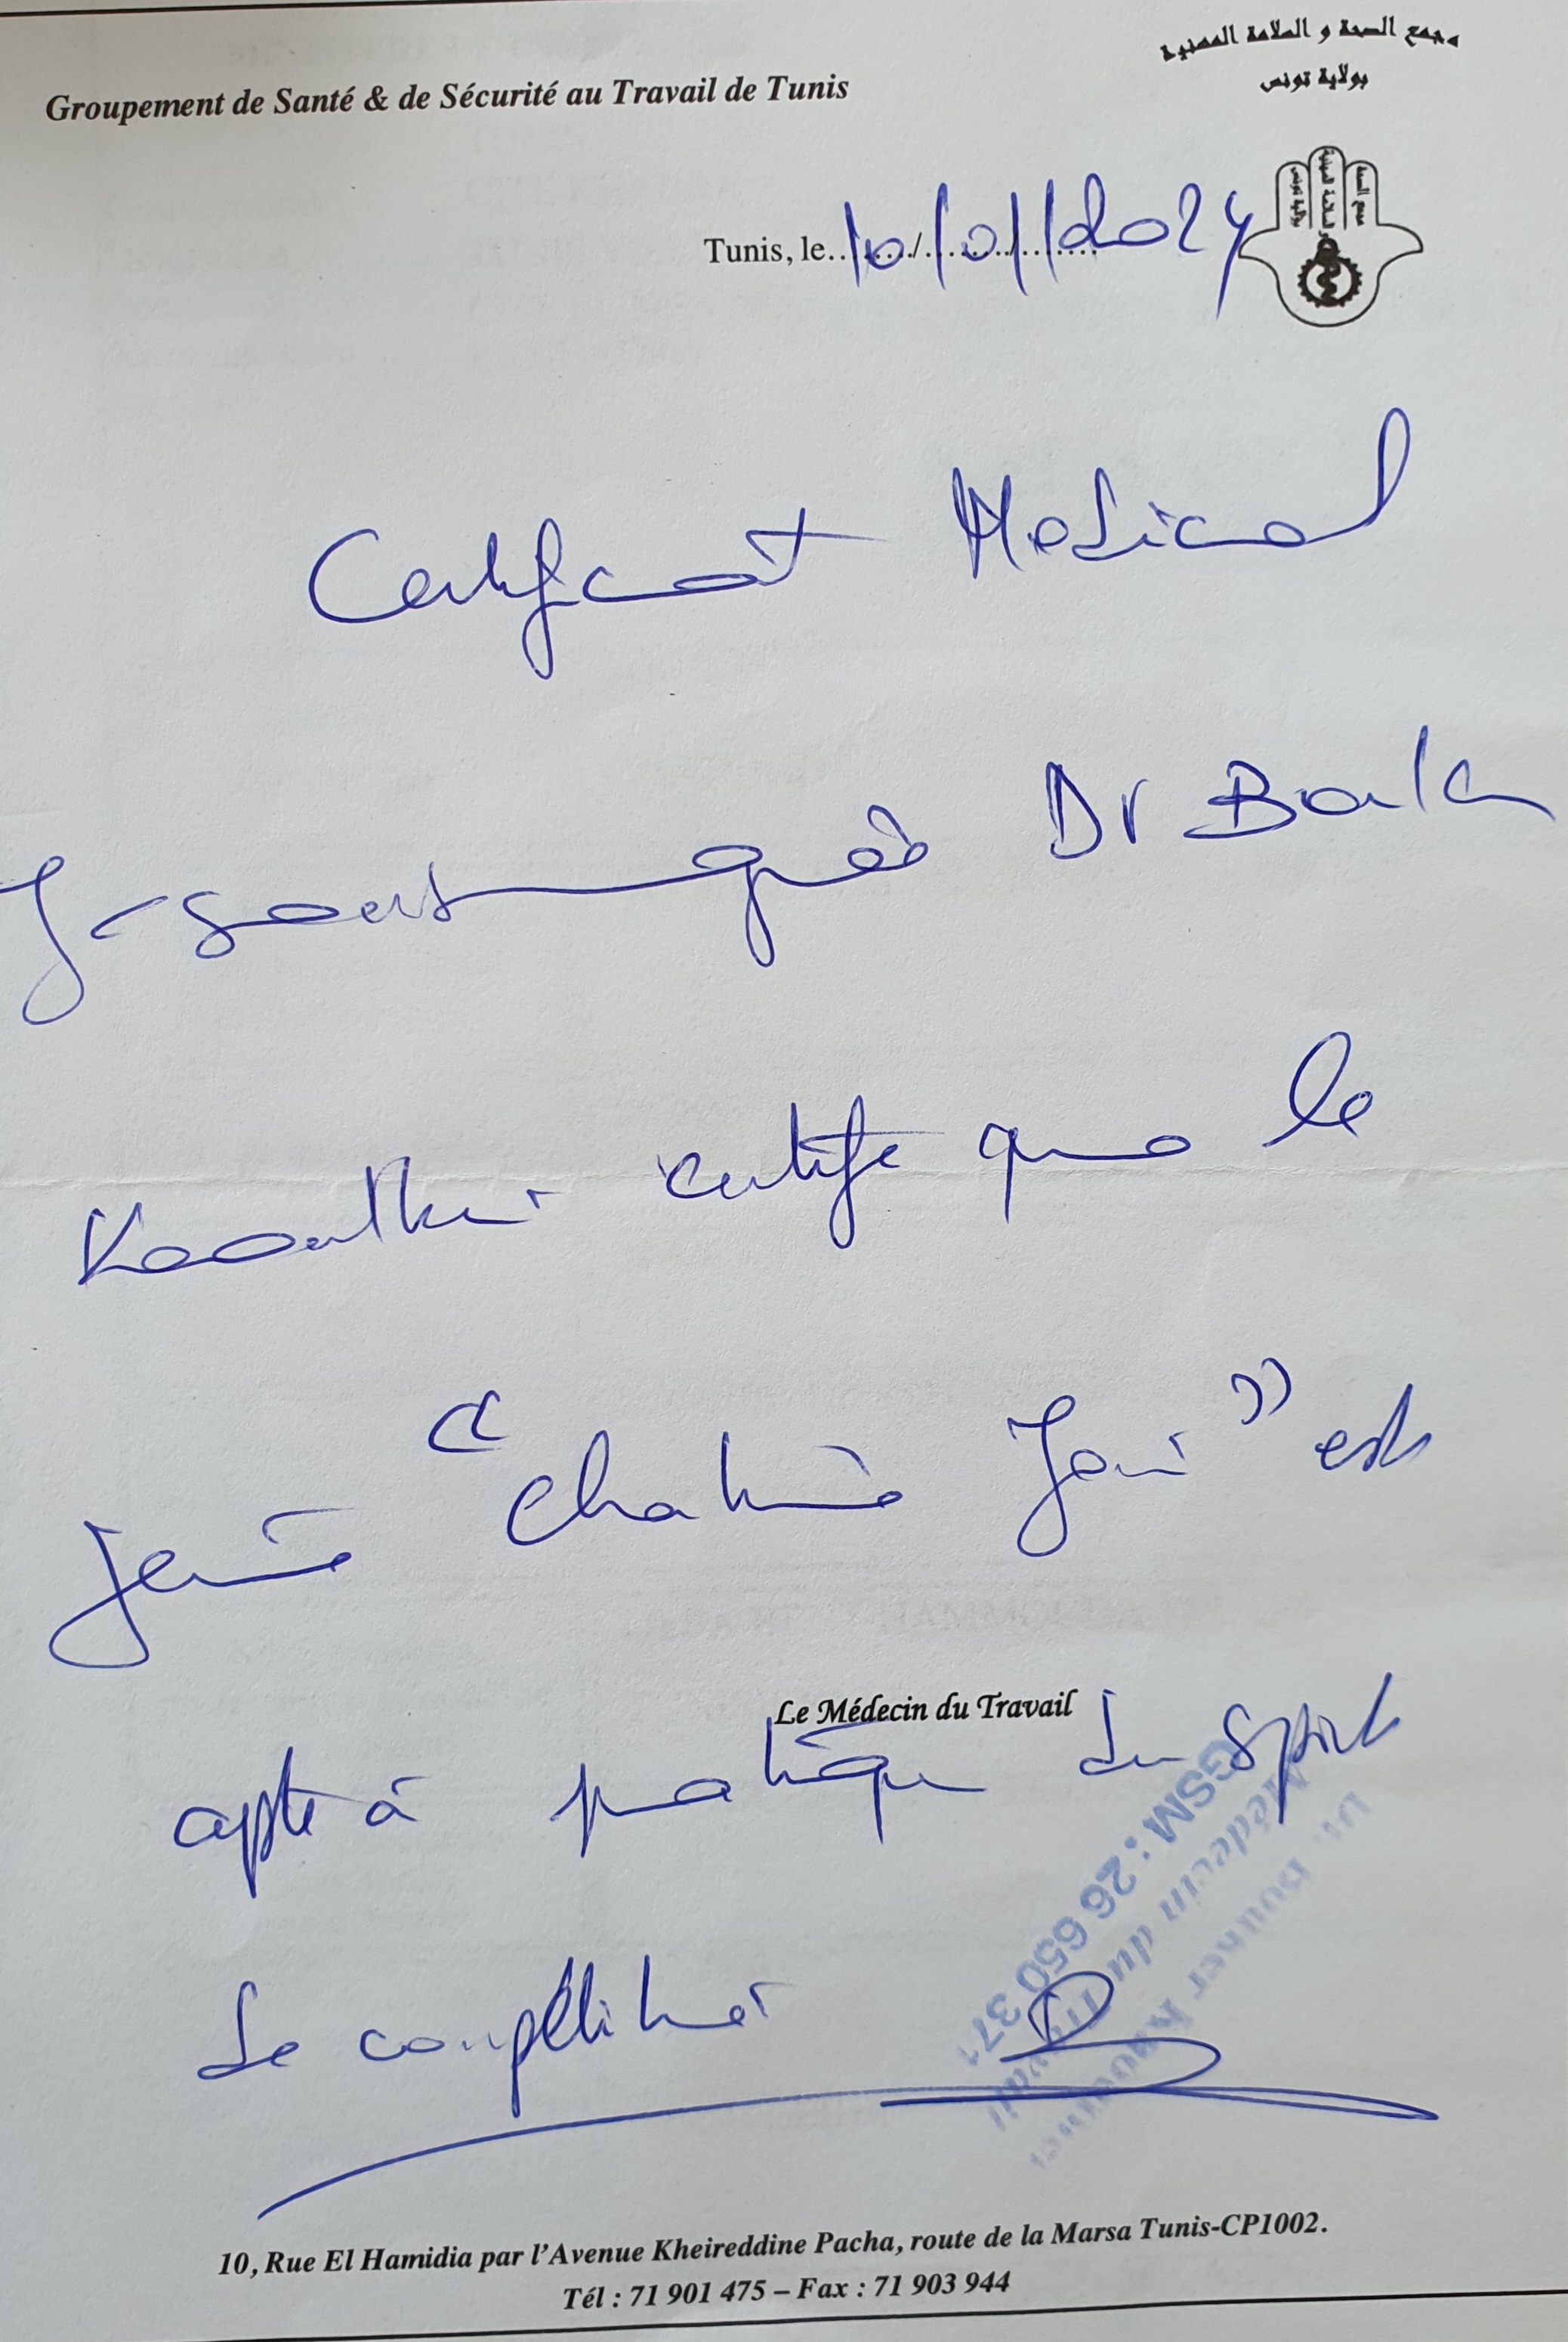 مجمع الصحة و السلامة المهنية
بولاية تونس
Groupement de Santé & de Sécurité au Travail de Tunis
مجمع الصحة
و السلامة المهنية
بولاية تونس
Tunis, le 10/01/2024
Certificat Medical
Je soussigné Dr
certifie que le
jeune " " est
Le Médecin du Travail
apte à pratiquer du sport
de compétition
GSM : 26 650 371
Médecin du Travail
10, Rue El Hamidia par l'Avenue Kheireddine Pacha, route de la Marsa Tunis-CP1002.
Tél : 71 901 475 – Fax : 71 903 944